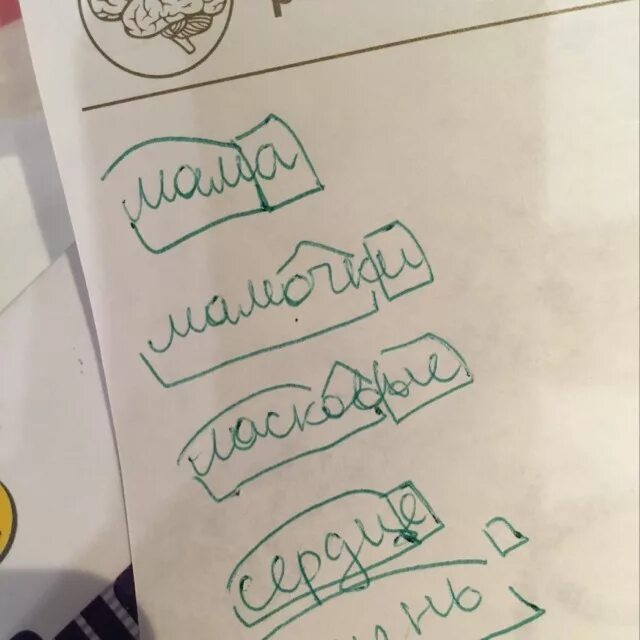 мама
мамочки
ласковые
сердце